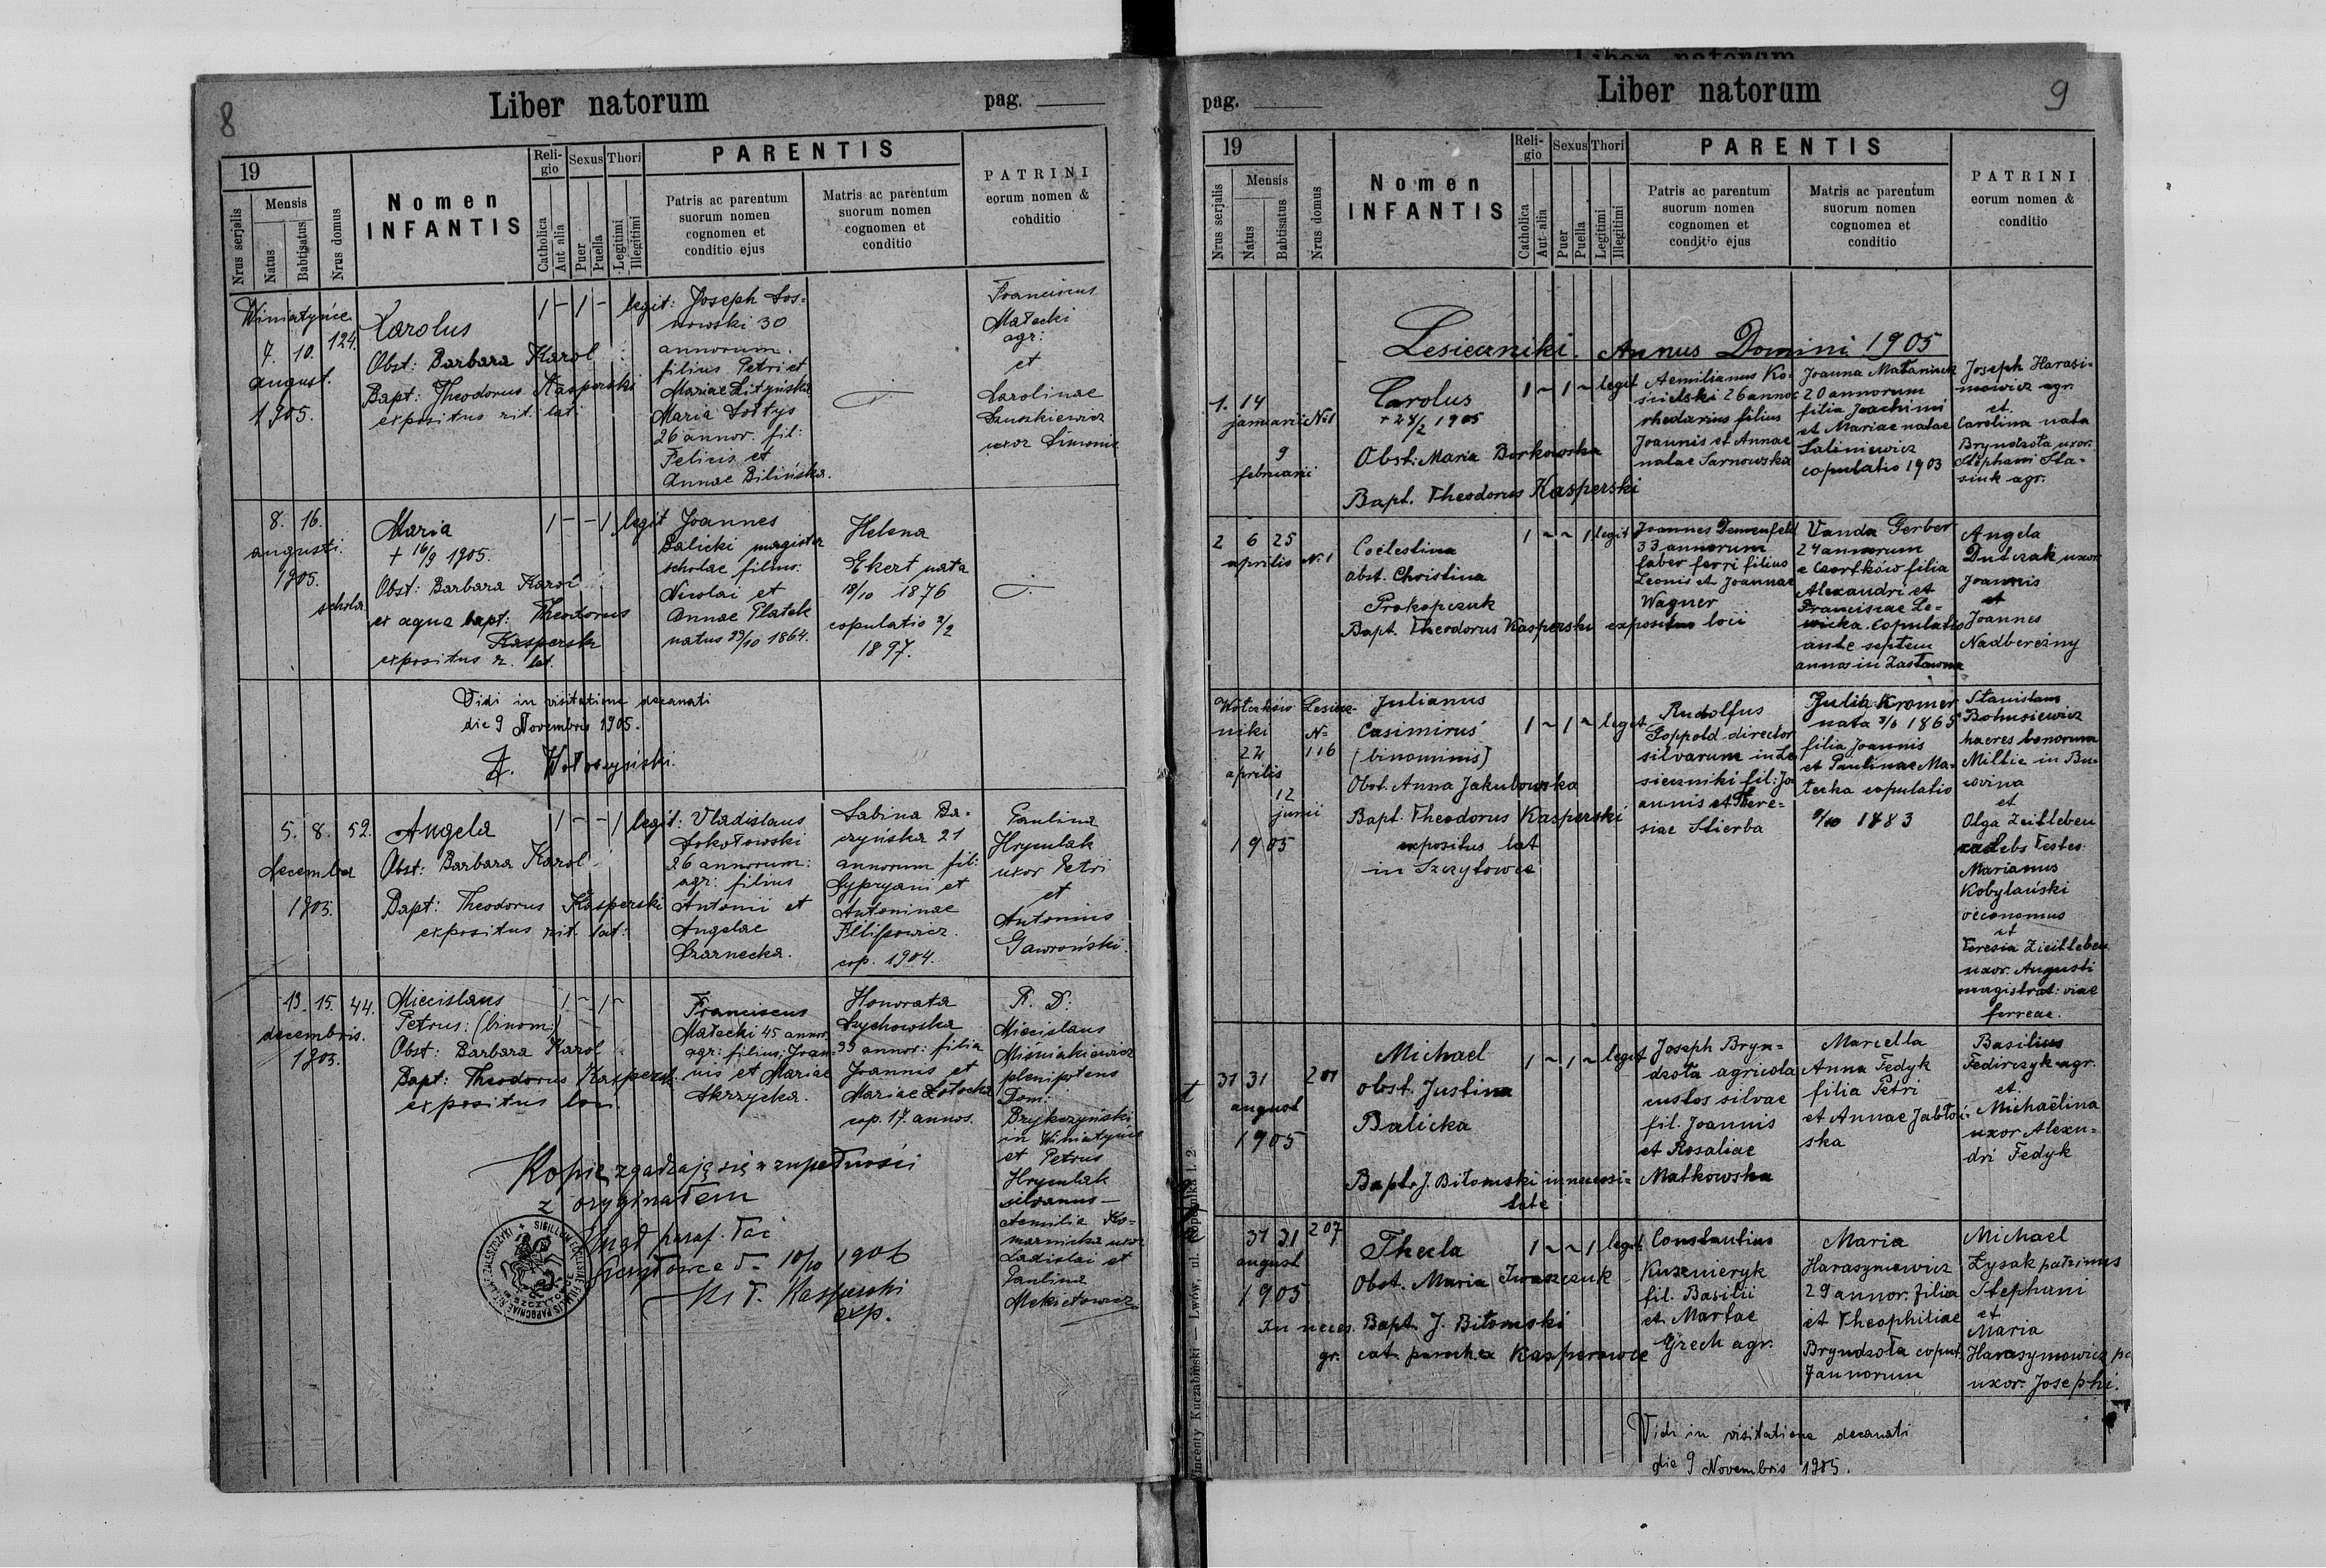 8
Liber natorum
pag.
19
Nrus serjalis
Mensis
Natus
Babtisatus
Nrus domus
Nomen
INFANTIS
Reli-
gio
Catholica
Aut alia
Sexus
Puer
Puella
Thori
Legitimi
Illegitimi
PARENTIS
Patris ac parentum
suorum nomen
cognomen et
conditio ejus
Matris ac parentum
suorum nomen
cognomen et
conditio
PATRINI
eorum nomen &
conditio
Winiatyńce
7. 10. 124.
august.
1905.
Karolus
Obst: Barbara Karol
Bapt: Theodorus Kasperski
expositus rit. lat:
1 – 1 – legit:
Joseph Sos-
nowski 30
annorum.
filius Petri et
Mariae Lityńska
Maria Sołtys
26 annor. fil:
Felicis et
Annae Bilińska.
Franciscus
Małecki
agr:
et
Carolinae
Łuszkiewicz
uxor Simonis
8. 16.
augusti.
1905.
schola
Maria
+ 16/9 1905.
Obst: Barbara Karol
ex aqua bapt: Theodorus
Kasperski
expositus r. lat.
1 – – 1 legit
Joannes
Balicki magister
scholae filius:
Nicolai et
Annae Platek
natus 23/10 1864.
Helena
Ekert nata
18/10 1876
copulatio 2/2
1897.
Vidi in visitatione decanati
die 9 Novembris 1905.
5. 8. 52.
decembr
1905.
Angela
Obst: Barbara Karol
Bapt: Theodorus Kasperski
expositus rit. lat:
1 – – 1 legit:
Vladislaus
Sokołowski
26 annorum:
agr: filius
Antonii et
Angelae
Czarnecka.
Sabina Ba-
czyńska 21
annorum fil:
Cypryani et
Antoninae
Filipowicz.
cop. 1904.
Paulina
Hrymlak
uxor Petri
et
Antonius
Gawroński.
13. 15. 44.
decembris.
1905.
Miecislaus
Petrus: (binom:)
Obst: Barbara Karol
Bapt: Theodorus Kasperski
expositus loci.
1 – 1 –
Franciscus
Małecki 45 annor.
agr: filius: Joan-
nis et Mariae
Skrzycka.
Honorata
Czychowska
39 annor: filia
Joannis et
Mariae Łotocka
cop. 17. annos.
R. D.
Miecislaus
Miśniakiewicz
plenipotens
Dom:
Brykczyński
in Winiatyńce
et Petrus
Hrymlak
silvanus –
Aemilia Ko-
marnicka uxor
Ladislai et
Paulina
Mekietowicz
Kopie zgadzają się w zupełności
z oryginałem
Urząd paraf. łaci
Szczytowce d. 10/10 1906
Ks T. Kasperski
exp.
pag.
Liber natorum
9
19
Nrus serjalis
Mensis
Natus
Babtisatus
Nrus domus
Nomen
INFANTIS
Reli-
gio
Catholica
Aut alia
Sexus
Puer
Puella
Thori
Legitimi
Illegitimi
PARENTIS
Patris ac parentum
suorum nomen
cognomen et
conditio ejus
Matris ac parentum
suorum nomen
cognomen et
conditio
PATRINI
eorum nomen &
conditio
Lesieczniki. Annus Domini 1905
1. 14
januarii No1
9
februarii
Carolus
+ 24/2 1905
Obst: Maria Borkowska
Bapt. Theodorus Kasperski
1 ~ 1 ~ legit
Aemilianus Ko-
ścielski 26 annor
rhedarius filius
Joannis et Annae
natae Sarnowska
Joanna Mataniuk
20 annorum
filia Joachimi
et Mariae natae
Saliniewicz
copulatio 1903
Joseph Harasi-
mowicz agr.
et.
Carolina nata
Bryndzota uxor.
Stephani Sta-
siuk agr.
2 6 25
aprilis No1
Coelestina
obst. Christina
Prokopczuk
Bapt. Theodorus Kasperski expositus loci
1 ~ ~ 1 legit
Joannes Demenfeld
33 annorum
faber ferri filius
Leonis et Joannae
Wagner
Vanda Gerber
24 annorum
e Czortków filia
Alexandri et
Franciscae Le-
wicka. Copulatio
ante septem
annos in Zastawna
Angela
Dutczak uxor
Joannis
et
Joannes
Nadbereżny
Lesiecz-
niki No
22 116
aprilis
12
junii
1905
Julianus
Casimirus
(binominis)
Obst. Anna Jakubowska
Bapt. Theodorus Kasperski
expositus lat
in Szczytowce
1 ~ 1 ~ legit
Rudolfus
Poppold director
silvarum in Le
sieczniki fil: Jo
annis et There-
siae Stierba
Julia Kromer
nata 3/6 1865
filia Joannis
et Paulinae Ma-
tecka copulatio
9/10 1883
Stanislaus
Bohusiewicz
haeres bonorum
Millie in Bu-
covina
et
Olga Zeitleben
Testes:
Marianus
Kobylański
oeconomus
et
Teresia Zieitleben
uxor. Augusti
magistrat: viae
ferreae.
31 31 201
august
1905
Michael
obst. Justina
Balicka
Bapt. J. Biłomski in necessi-
tate
1 ~ 1 ~ legit
Joseph Bryn-
dzota agricola
custos silvae
fil. Joannis
et Rosaliae
Matkowska
Marcella
Anna Fedyk
filia Petri
et Annae Jabłoń-
ska
Basilius
Fedirczyk agr.
et
Michaëlina
uxor Alexan-
dri Fedyk
31 31 207
august
1905
Thecla
Obst. Maria Iwaszczuk
In neces. Bapt. J. Biłomski
gr. cat. parochex Kasperowce
1 ~ ~ 1 legit
Constantius
Kusznieryk
fil. Basilii
et Martae
Grech agr.
Maria
Haraszymowicz
29 annor. filia
et Theophiliae
Bryndzota copul.
7 annorum
Michael
Łysak patrinus
Stephani
et
Maria
Harasymowicz
uxor. Josephi.
Vidi in visitatione decanati
die 9 Novembris 1905.